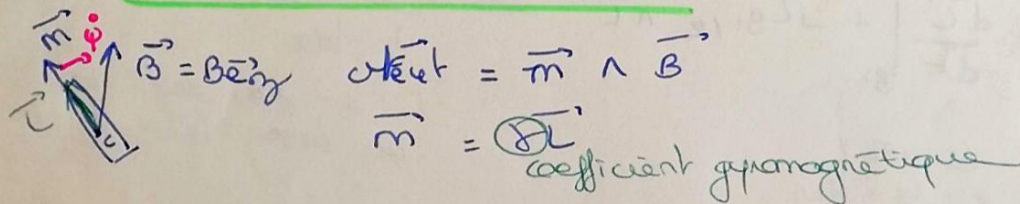 m⃗ φ°
L⃗ c B⃗ = Be⃗z M⃗ext = m⃗ ∧ B⃗
m⃗ = γL⃗
coefficient gyromagnétique